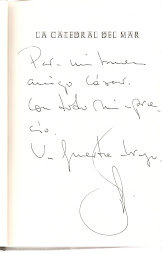 LA CATEDRAL DEL MAR
Para mi buen
amigo César.
Con todo mi apre-
cio.
Un fuerte abrazo.